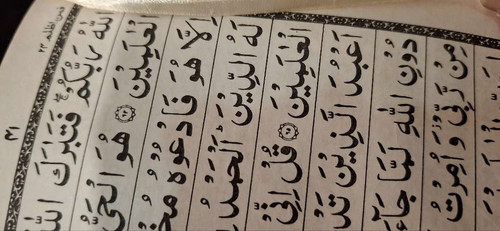 فمن اظلم ٢٤
اللّٰهُ رَبُّكُمْ ۖ فَتَبٰرَكَ اللّٰهُ
الْعٰلَمِيْنَ ﴿٦٤﴾ هُوَ الْحَيُّ
اِلَّا هُوَ فَادْعُوْهُ مُخْ
لَهُ الدِّيْنَ ؕ اَلْحَمْدُ
الْعٰلَمِيْنَ ﴿٦٥﴾ قُلْ اِنِّيْ
اَعْبُدَ الَّذِيْنَ تَدْ
دُوْنِ اللّٰهِ لَمَّا جَآءَ
مِنْ رَّبِّيْ ؗ وَ اُمِرْتُ